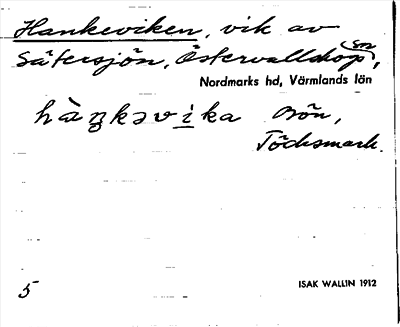 Hankeviken, vik av
Sätersjön, Östervallskog sn,
Nordmarks hd, Värmlands län
hàŋkəvika Bön,
Töcksmark.
5
ISAK WALLIN 1912